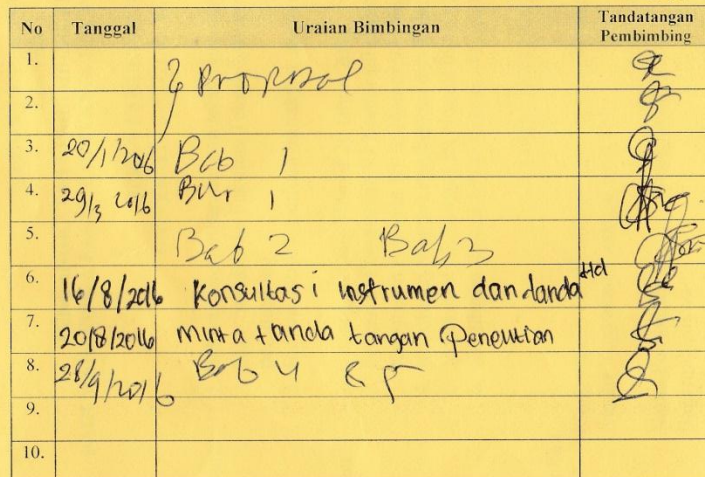 No Tanggal Uraian Bimbingan Tandatangan Pembimbing
1. Proposal
2.
3. 20/1/2016 Bab 1
4. 29/3 2016 Bab 1
5. Bab 2 Bab 3
6. 16/8/2016 Konsultasi instrumen dan tanda
7. 20/8/2016 minta tanda tangan Penelitian
8. 28/9/2016 Bab 4 & 5
9.
10.